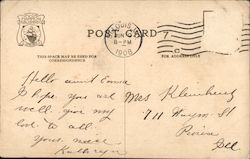 POST CARD
THIS SPACE MAY BE USED FOR
CORRESPONDENCE
FOR ADDRESS ONLY
LOUIS
JUN
8-PM
1908
7-
Hello aunt Emma
I hope you are
well give my
love to all.
your niece
Kathryn
Mrs
711 St
Peoria
Ill